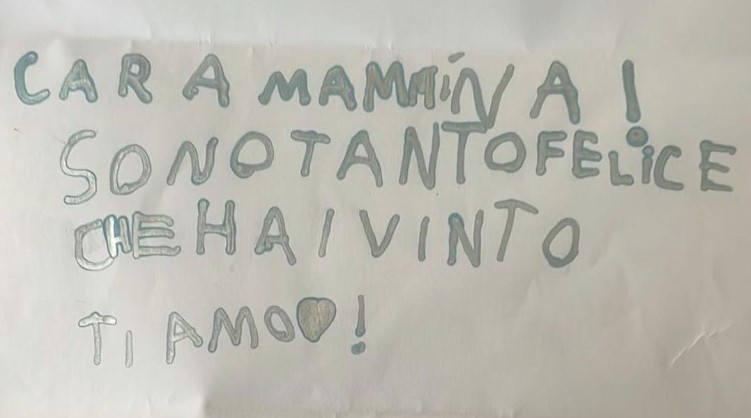 CARA MAMMINA!
SONO TANTO FELICE
CHE HAI VINTO
TI AMO♥!